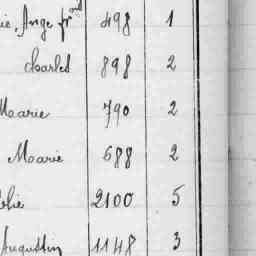 Ange frnd 498 1
Charles 898 2
Maarie 790 2
Maarie 688 2
2100 5
Augustin 1148 3